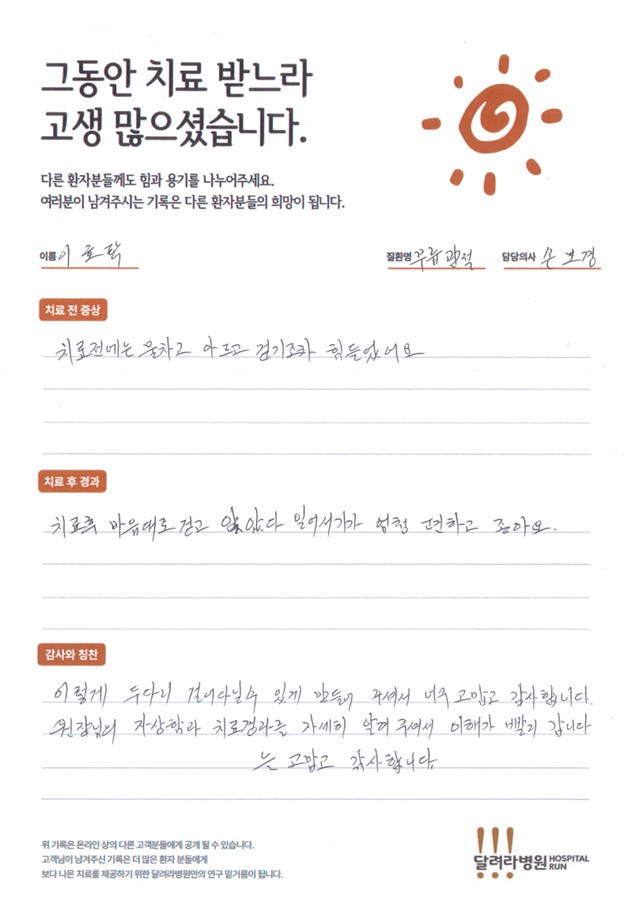 그동안 치료 받느라
고생 많으셨습니다.
다른 환자분들께도 힘과 용기를 나누어주세요.
여러분이 남겨주시는 기록은 다른 환자분들의 희망이 됩니다.
이름 이 질환명 무릎관절 담당의사 손 보경
치료 전 증상
치료전에는 붙차고 아프고 걷기조차 힘들었어요
치료 후 경과
치료후 마음대로 걷고 앉았다 일어서기가 엄청 편하고 좋아요.
감사와 칭찬
이렇게 두다리 걸어다닐수 있게 만들어 주셔서 너무 고맙고 감사합니다.
원장님의 자상함과 치료경과를 자세히 알려 주셔서 이해가 빨리 갑니다
늘 고맙고 감사합니다.
위 기록은 온라인 상의 다른 고객분들에게 공개 될 수 있습니다.
고객님이 남겨주신 기록은 더 많은 환자 분들에게
보다 나은 치료를 제공하기 위한 달려라병원만의 연구 밑거름이 됩니다.
!!!
달려라병원 HOSPITAL RUN